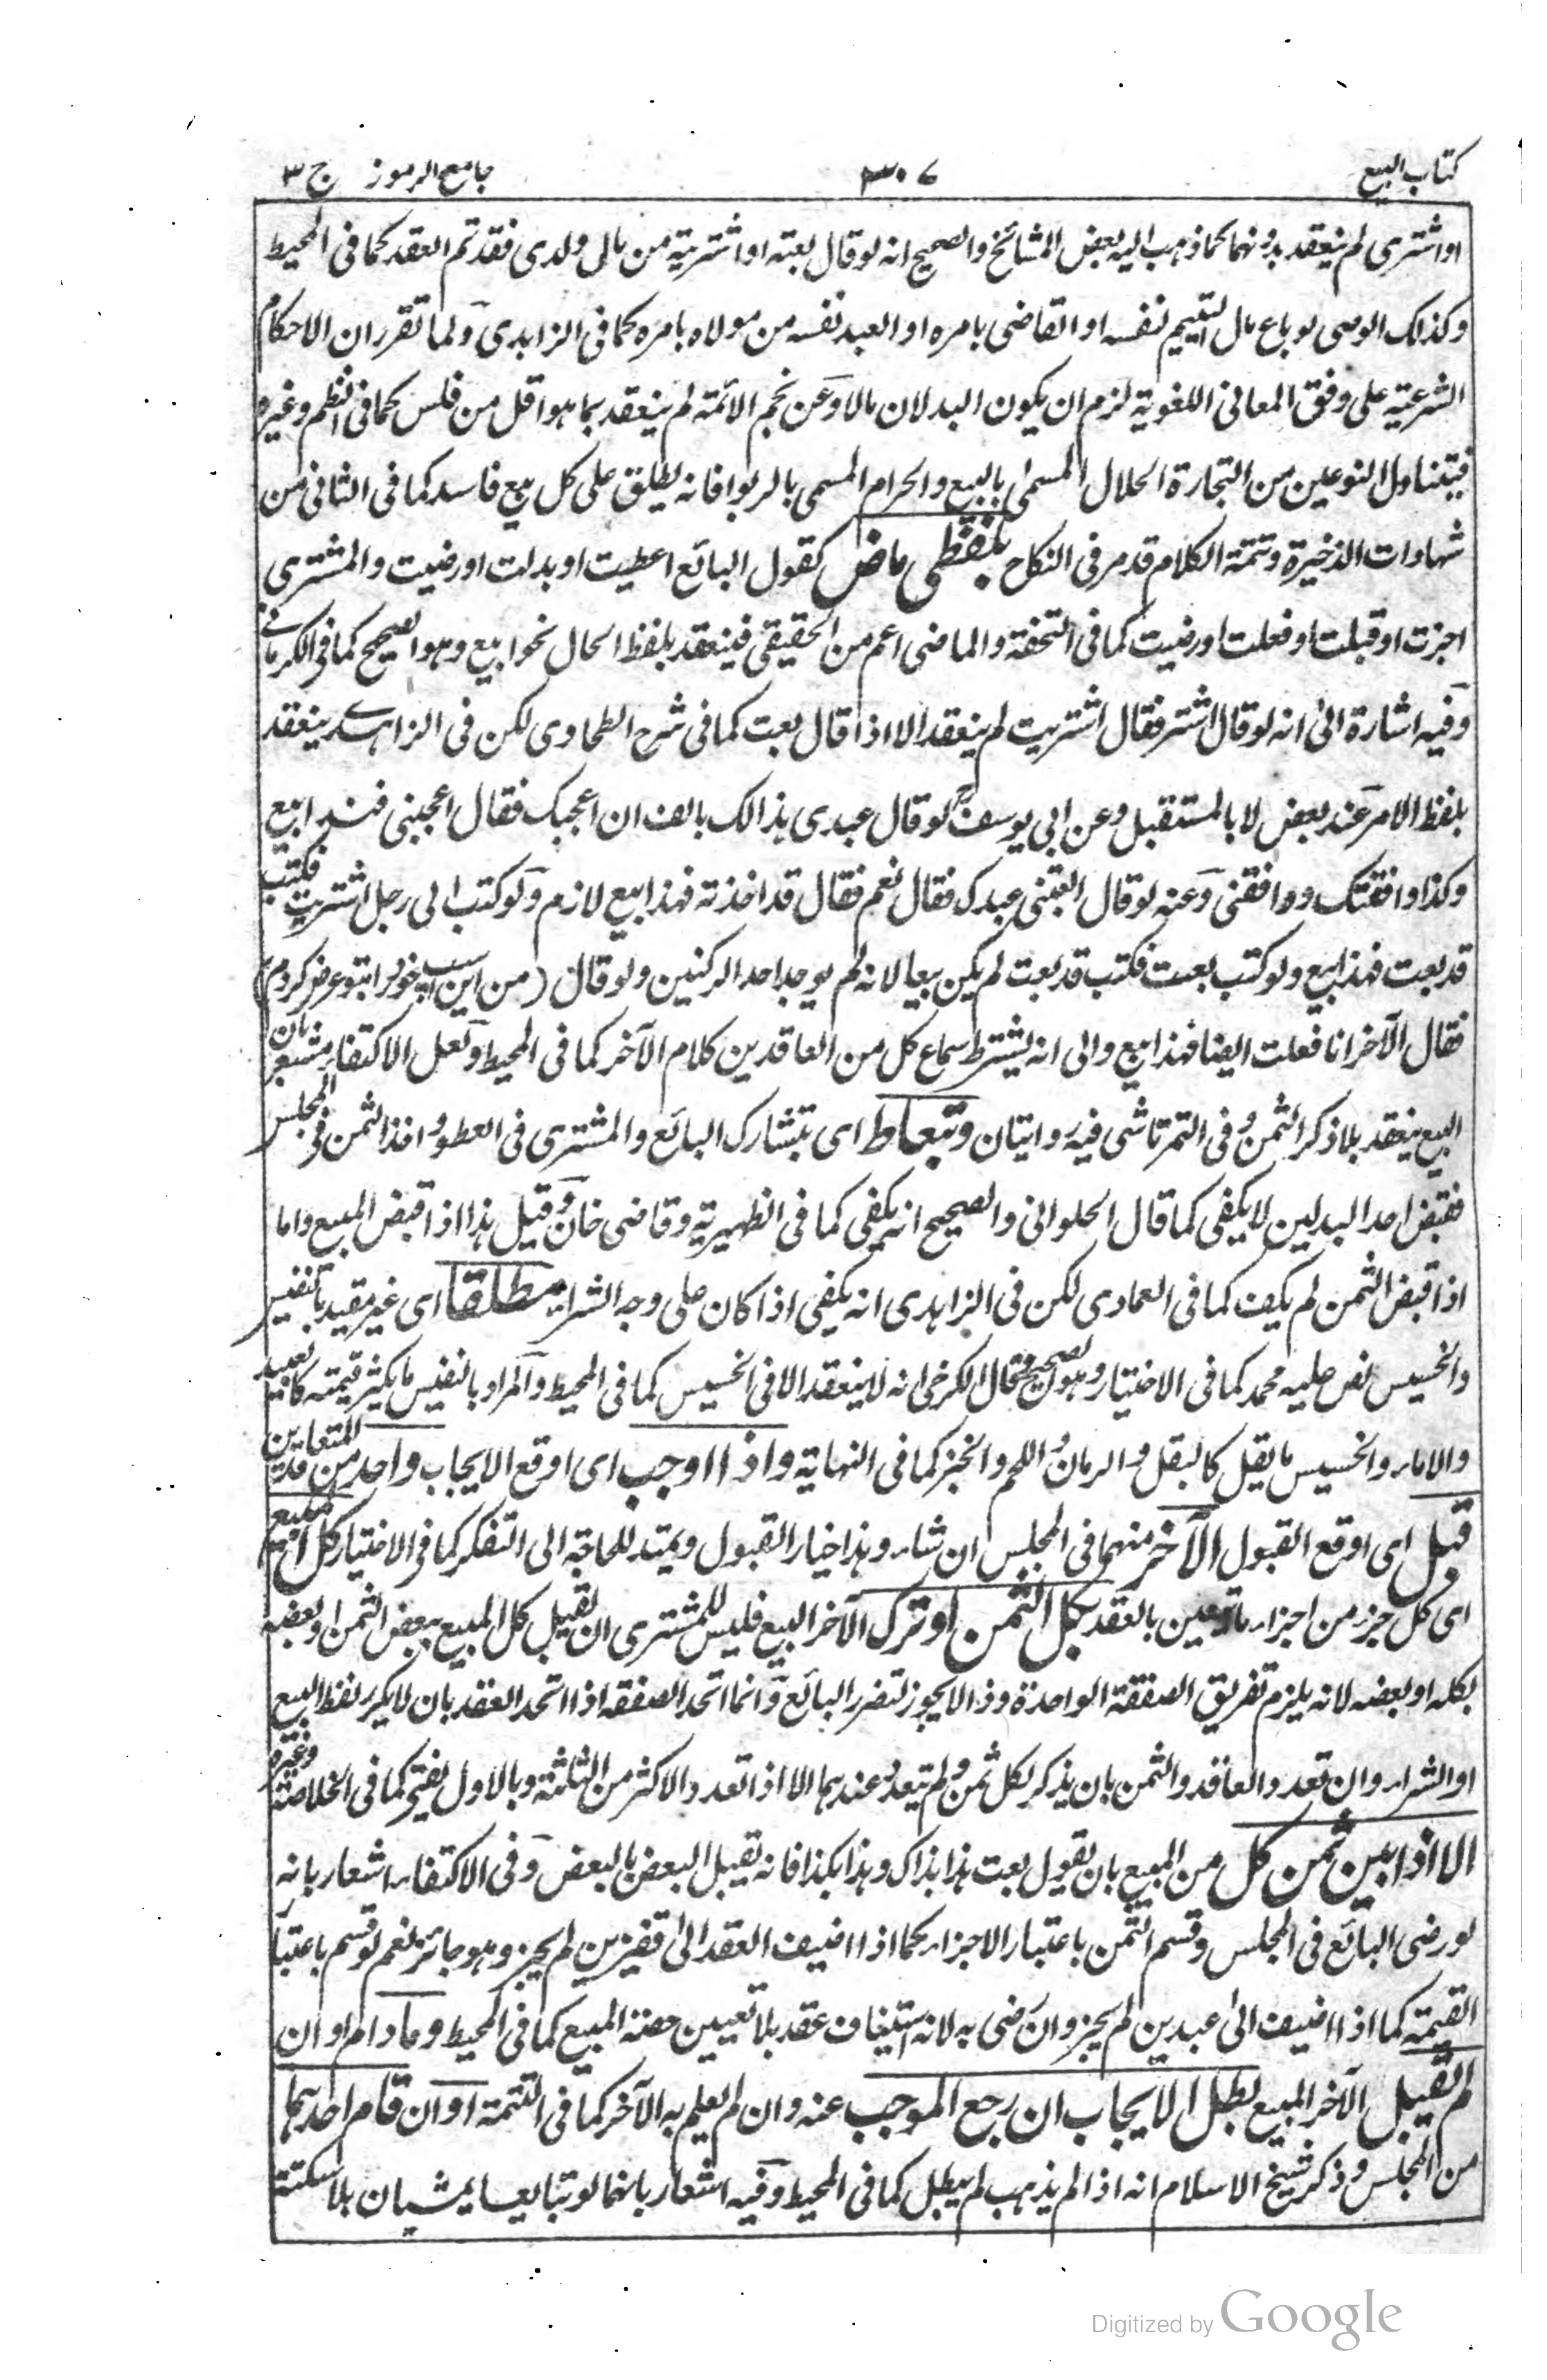 كتاب البيع ٣٠٧ جامع الرموز ج ٣
او اشترى لم ينعقد بدونهما كما ذهب اليه بعض المشائخ والصحيح انه لو قال بعته او اشتريته من مال ولدى فقد تم العقد كما فى المحيط
وكذلك الوصى لو باع مال اليتيم لنفسه او القاضى بامره او العبد نفسه من مولاه بامره كما فى الزاهدى ولما تقرر ان الاحكام
الشرعية على وفق المعانى اللغوية لزم ان يكون البدلان مالا وعن نجم الائمة لم ينعقد بما هو اقل من فلس كما فى النظم وغيره
فيتناول النوعين من التجارة الحلال المسمى بالبيع والحرام المسمى بالربوا فانه يطلق على كل بيع فاسد كما فى الثانى من
شهادات الذخيرة وتتمة الكلام قد مر فى النكاح بلفظى ماض كقول البائع اعطيت او بدلت او رضيت والمشترى
اجزت او قبلت او فعلت او رضيت كما فى التحفة والماضى اعم من الحقيقى فينعقد بلفظ الحال نحو ابيع وهو الصحيح كما فى الكرمانى
وفيه اشارة الى انه لو قال اشتر فقال اشتريت لم ينعقد الا اذا قال بعت كما فى شرح الطحاوى لكن فى الزاهدى ينعقد
بلفظ الامر عند بعض لا بالمستقبل وعن ابى يوسف لو قال عبدى هذا لك بالف ان اعجبك فقال اعجبنى فهذا بيع
وكذا وافقتك ووافقنى وعنه لو قال ابعتنى عبدك فقال نعم فقال قد اخذته فهذا بيع لازم ولو كتب الى رجل اشتريت فكتب
قد بعت فهذا بيع ولو كتب بعت فكتب قد بعت لم يكن بيعا لانه لم يوجد احد الركنين ولو قال (من اين اسپ خود را بتو عوض كردم)
فقال الآخر انا فعلت ايضا فهذا بيع والى انه يشترط سماع كل من العاقدين كلام الآخر كما فى المحيط ولعل الاكتفاء مشعر بان
البيع ينعقد بلا ذكر الثمن وفى التمرتاشى فيه روايتان وتعاط اى بتشارك البائع والمشترى فى العطو واخذ الثمن فى المجلس
فقبض احد البدلين لا يكفى كما قال الحلوانى والصحيح انه يكفى كما فى الظهيرية وقاضى خان وقيل هذا اذا قبض المبيع واما
اذا قبض الثمن لم يكف كما فى العمادى لكن فى الزاهدى انه يكفى اذا كان على وجه الشراء مطلقا اى غير مقيد بالنفيس
والخسيس نص عليه محمد كما فى الاختيار وهو الصحيح وقال الكرخى انه لا ينعقد الا فى الخسيس كما فى المحيط والمراد بالنفيس ما يكثر قيمته كالعبيد
والاماء والخسيس ما يقل كالبقل والرمان واللحم والخبز كما فى النهاية واذا اوجب اى اوقع الايجاب واحد من المتعاقدين
قبل اى اوقع القبول الآخر منهما فى المجلس ان شاء وهذا خيار القبول ويمتد للحاجة الى التفكر كما فى الاختيار كل المبيع
اى كل جزء من اجزاء ما تعين بالعقد بكل الثمن او ترك الآخر البيع فليس للمشترى ان يقبل كل المبيع ببعض الثمن او بعضه
بكله او بعضه لانه يلزم تفريق الصفقة الواحدة وذا لا يجوز لتضرر البائع وانما اتحد الصفقة اذا اتحد العقد بان لا يكرر لفظ البيع
او الشراء وان تعدد العاقد والثمن بان يذكر لكل ثمن ولم يتعدد عندهما الا اذا تعدد الاكثر من الثلثة وبالاول يفتى كما فى الخلاصة وغيره
الا اذا بين ثمن كل من المبيع بان يقول بعت هذا بذاك وهذا بكذا فانه يقبل البعض بالبعض وفى الاكتفاء اشعار بانه
لو رضى البائع فى المجلس وقسم الثمن باعتبار الاجزاء كما اذا اضيف العقد الى قفيزين لم يجز وهو جائز نعم لو قسم باعتبار
القيمة كما اذا اضيف الى عبدين لم يجز وان رضى به لانه استيناف عقد بلا تعيين حصة المبيع كما فى المحيط وما دام او ان
لم يقبل الآخر المبيع بطل الايجاب ان رجع الموجب عنه وان لم يعلم به الآخر كما فى التتمة او ان قام احدهما
من المجلس وذكر شيخ الاسلام انه اذا لم يذهب لم يبطل كما فى المحيط وفيه اشعار بانهما لو تبايعا يمشيان بلا سكتة
Digitized by Google